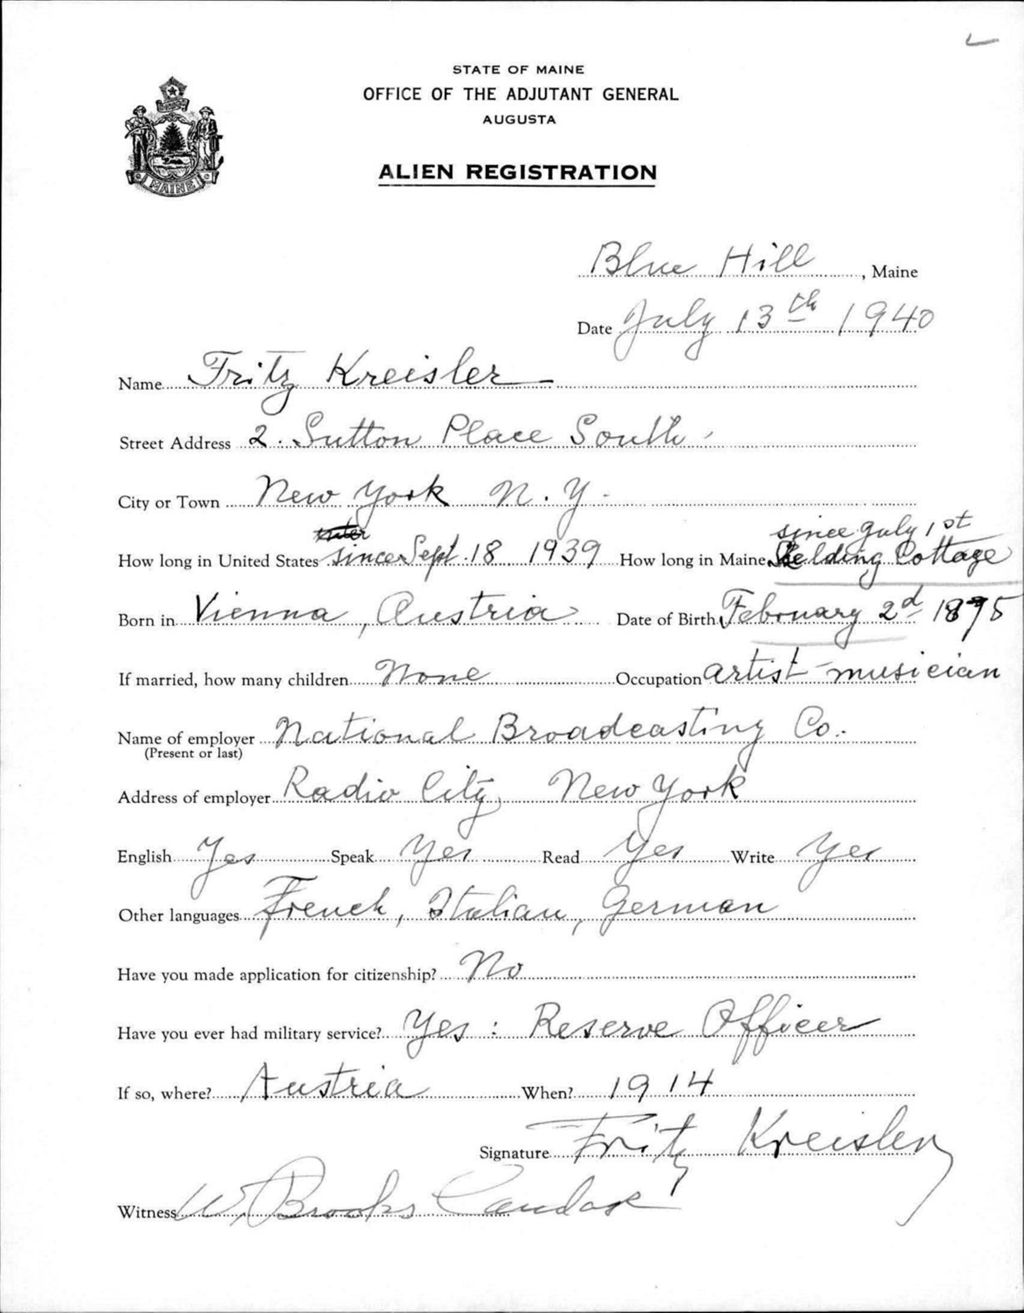 STATE OF MAINE
OFFICE OF THE ADJUTANT GENERAL
AUGUSTA
ALIEN REGISTRATION
MAINE
Blue Hill, Maine
Date July 13th 1940
Name Fritz Kreisler
Street Address 2. Sutton Place South
City or Town New York N. Y.
since July 1st
How long in United States since Sept 18 1939 How long in Maine Belding Cottage
Born in Vienna, Austria Date of Birth February 2d 1875
If married, how many children None Occupation artist-musician
Name of employer National Broadcasting Co.
(Present or last)
Address of employer Radio City, New York
English Yes Speak Yes Read Yes Write Yes
Other languages French, Italian, German
Have you made application for citizenship? No
Have you ever had military service? Yes: Reserve Officer
If so, where? Austria When? 1914
Signature Fritz Kreisler
Witness W. Brooks